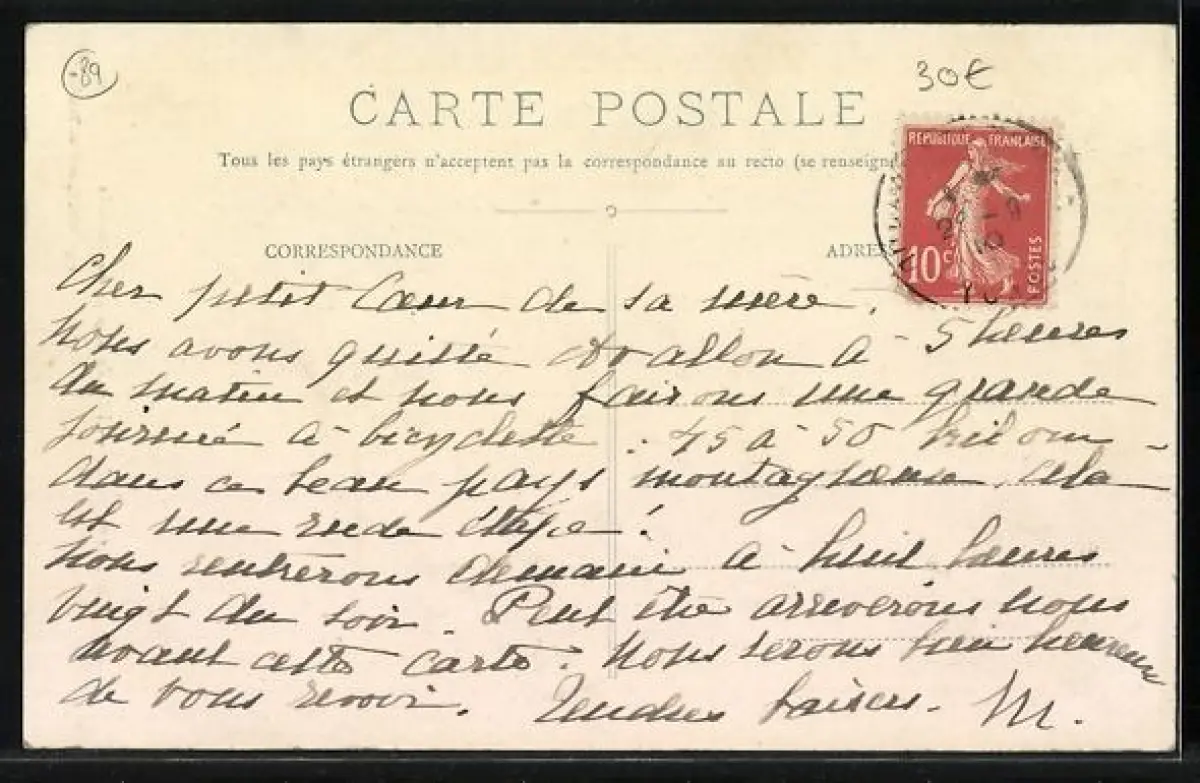 -89
30€
CARTE POSTALE
Tous les pays étrangers n'acceptent pas la correspondance au recto (se renseign
REPUBLIQUE FRANÇAISE
10c
POSTES
CORRESPONDANCE
ADRES
Cher petit Cœur de sa mère.
Nous avons quitté Avallon à 5 heures
du matin et nous fairons une grande
journée à bicyclette. 45 à 50 kilom
dans ce beau pays montagneux, cela
est une rude étape!
Nous rentrerons demain à huit heures
vingt du soir. Peut être arriverons nous
avant cette carte. Nous serons bien heureux
de vous revoir. Tendres baisers. M.